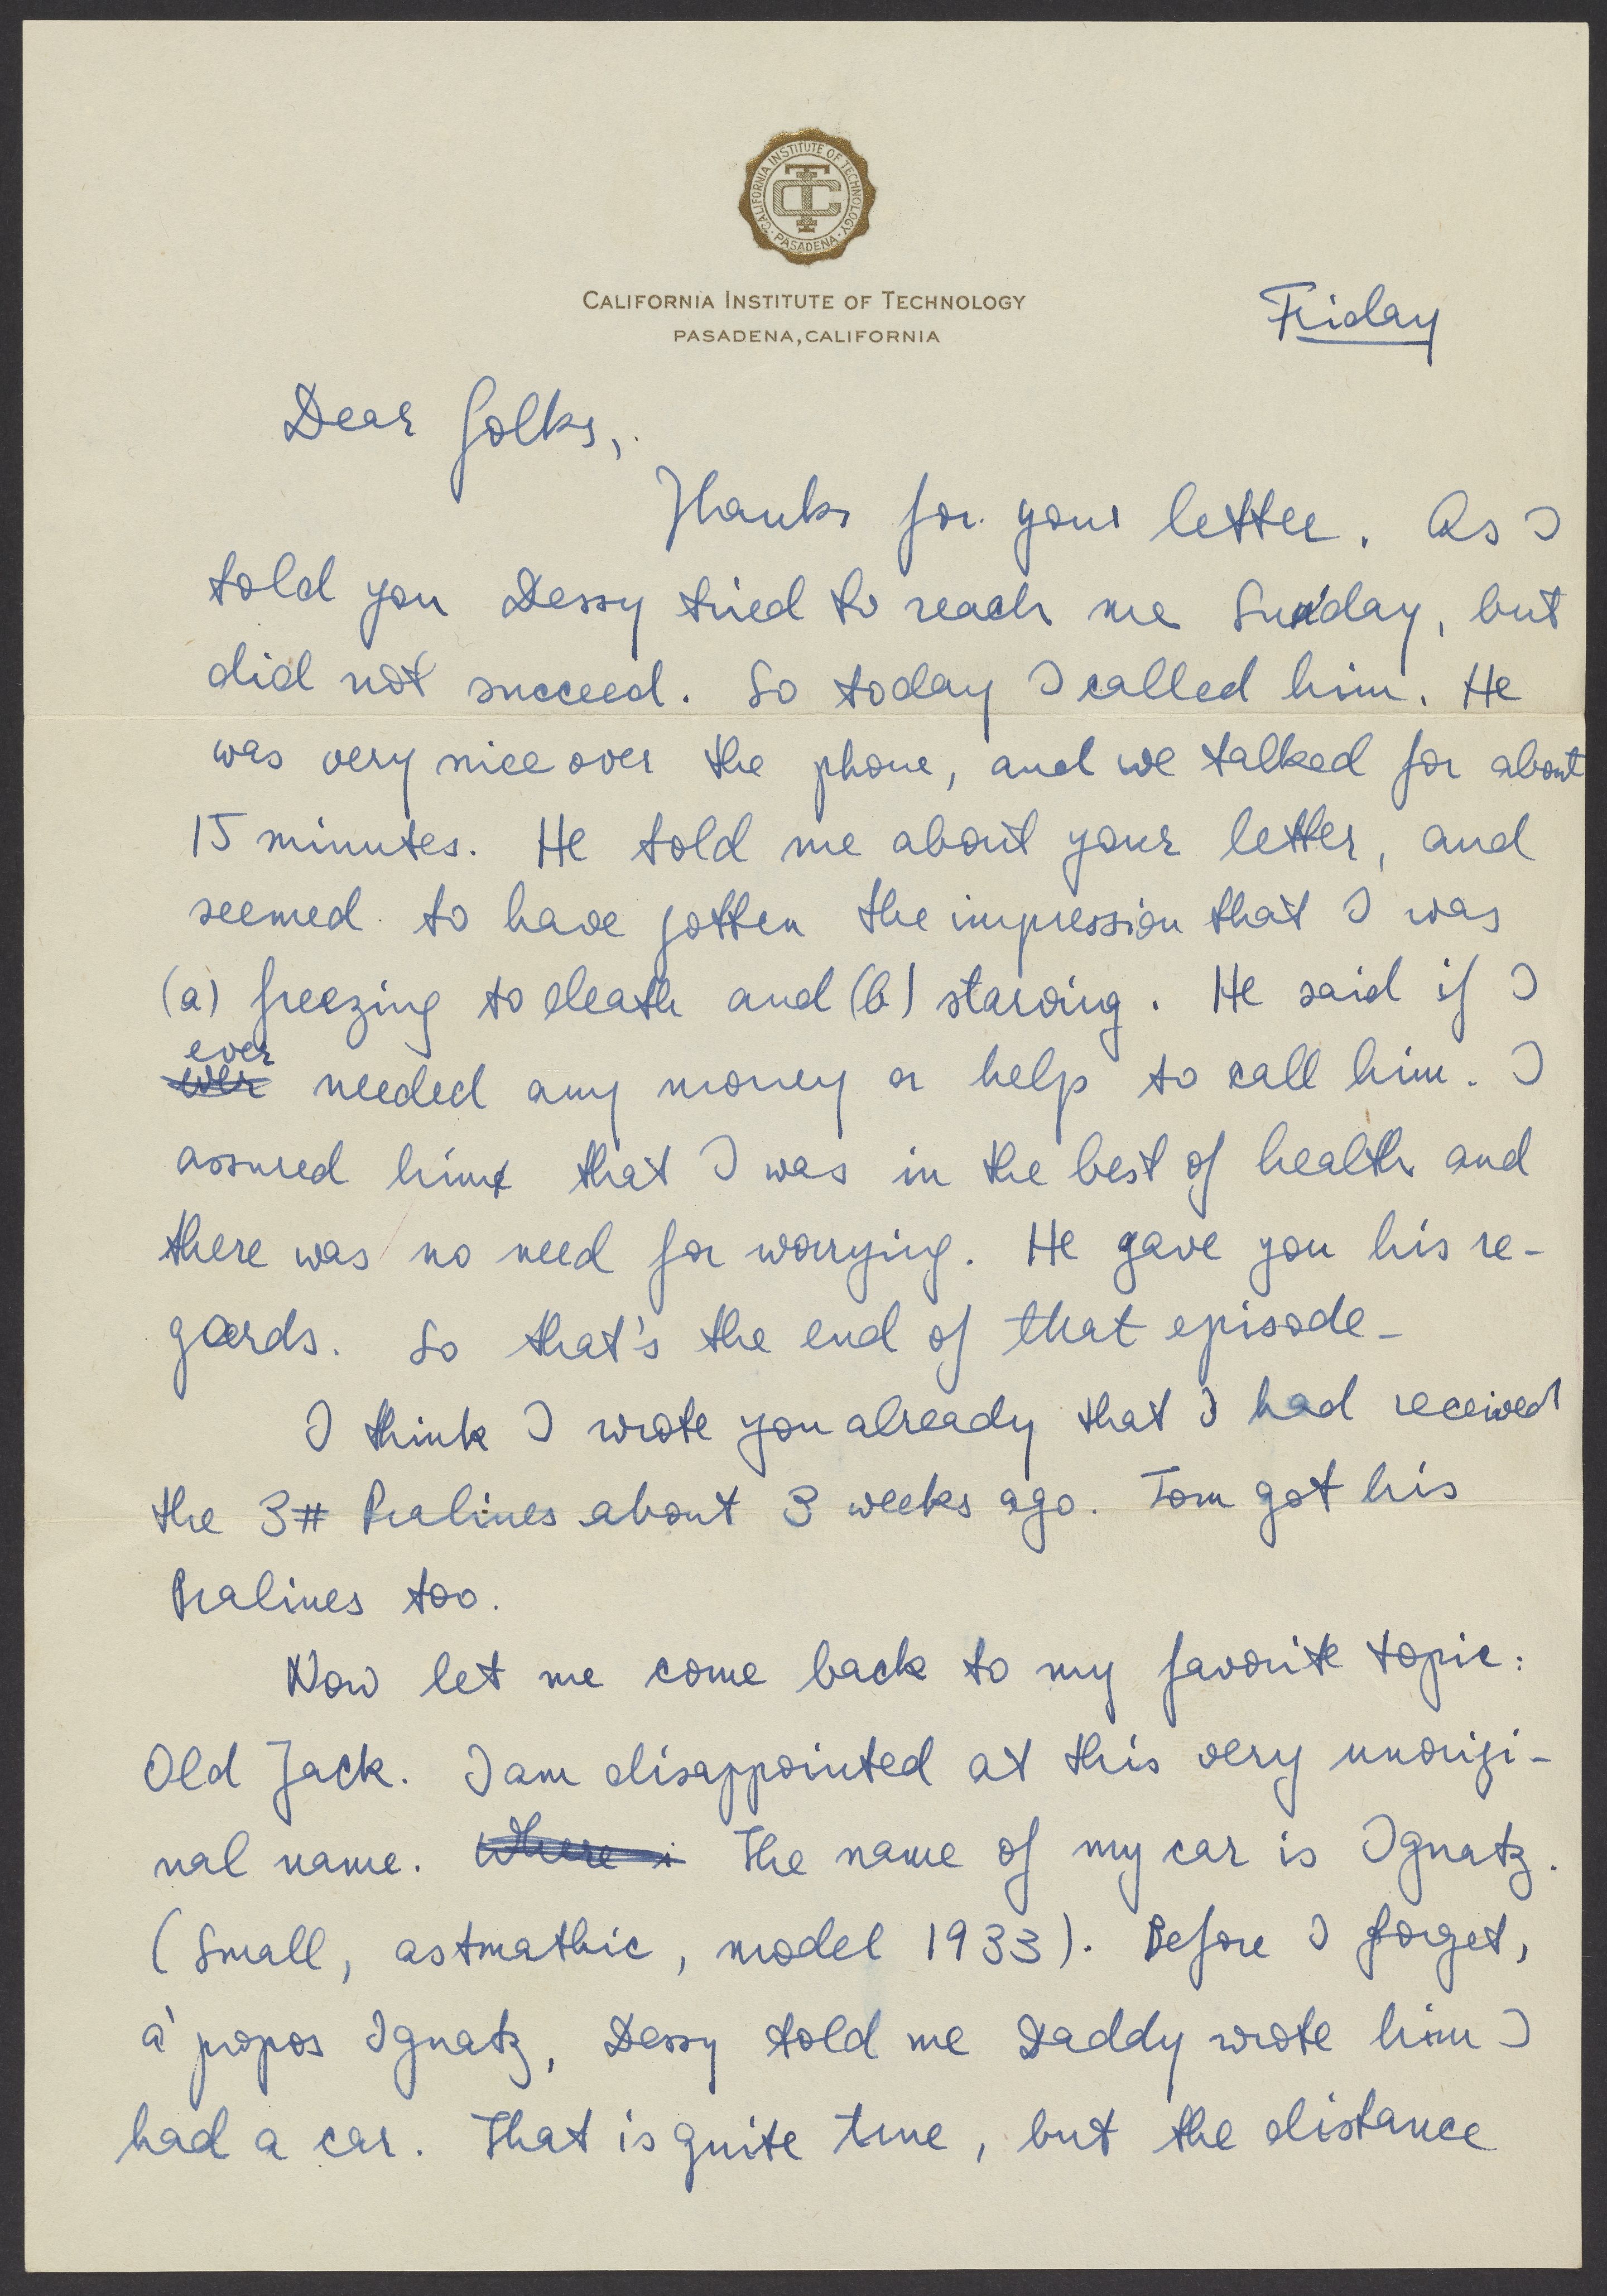 CALIFORNIA INSTITUTE OF TECHNOLOGY
PASADENA
TIC
CALIFORNIA INSTITUTE OF TECHNOLOGY
PASADENA, CALIFORNIA
Friday
Dear folks,
Thanks for your letter. As I
told you Dessy tried to reach me Sunday, but
did not succeed. So today I called him. He
was very nice over the phone, and we talked for about
15 minutes. He told me about your letter, and
seemed to have gotten the impression that I was
(a) freezing to death and (b) starving. He said if I
ever
needed any money or help to call him. I
assured him that I was in the best of health and
there was no need for worrying. He gave you his re-
gards. So that's the end of that episode-
I think I wrote you already that I had received
the 3# Pralines about 3 weeks ago. Tom got his
Pralines too.
Now let me come back to my favorite topic:
Old Jack. I am disappointed at this very unorigi-
nal name. Where i The name of my car is Ignatz.
(Small, astmathic, model 1933). Before I forget,
à propos Ignatz, Dessy told me Daddy wrote him I
had a car. That is quite true, but the distance